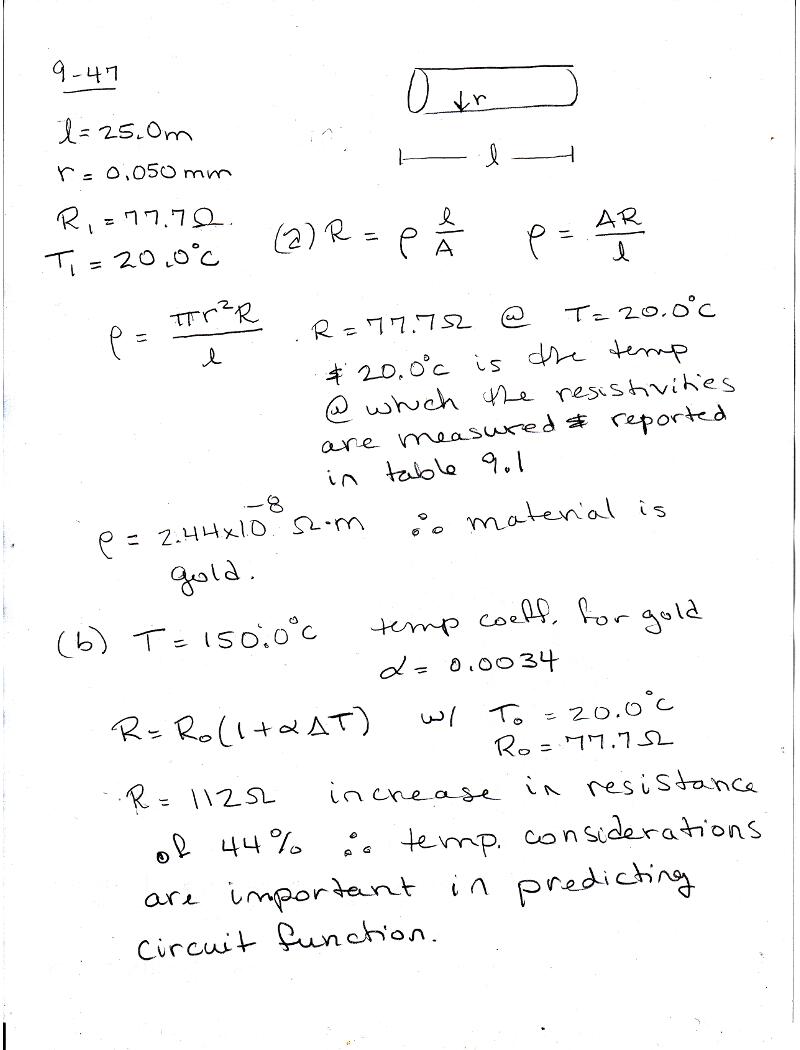 9-47
l = 25.0m
r = 0.050 mm
R₁ = 77.7Ω.
T₁ = 20.0°C
r
l
(a) R = ρ l/A ρ = AR/l
ρ = πr²R/l . R = 77.7Ω @ T = 20.0°C
& 20.0°C is the temp
@ which the resistivities
are measured & reported
in table 9.1
ρ = 2.44x10⁻⁸ Ω·m ∴ material is
gold.
(b) T = 150.0°C temp coeff. for gold
α = 0.0034
R = R₀(1+αΔT) w/ T₀ = 20.0°C
R₀ = 77.7Ω
R = 112Ω increase in resistance
of 44% ∴ temp. considerations
are important in predicting
circuit function.